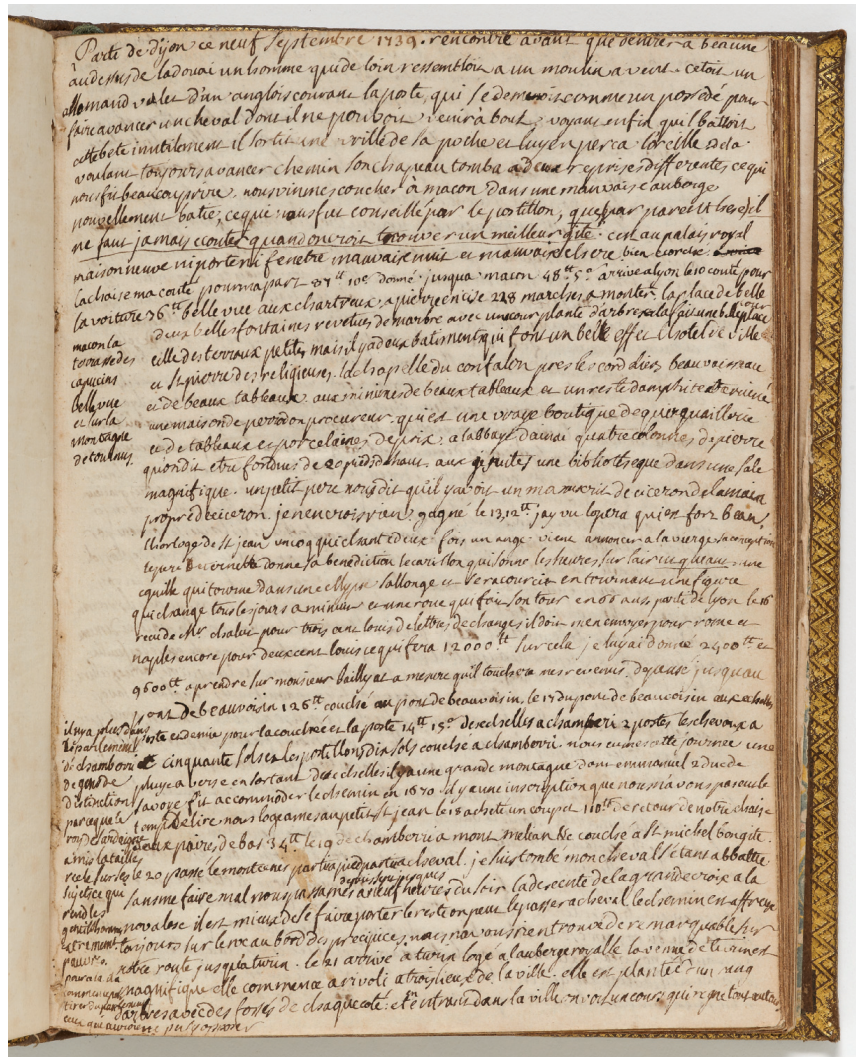 Parti de dijon ce neuf Septembre 1739. rencontré avant que dentrer a beaune
au dessus de ladouai un homme qui de loin ressembloit a un moulin a vent. cetoit un
allemand valet d'un anglois courant la poste, qui se demenoit comme un possedé pour
faire avancer un cheval dont il ne pouvoit venir a bout, voyant enfin quil battoit
cette bete inutilement il sortit une vrille de sa poche et luy en perca loreille et la
voulant toujours avancer chemin son chapeau tomba a deux reprises differentes ce qui
nous fit beaucoup rire. nous vinmes coucher à macon dans une mauvaise auberge
nouvellement batie, ce qui nous fut conseillé par le postillon, que par parenthese il
ne faut jamais ecouter quand on croit trouver un meilleur gite. cest au palais royal
maison neuve ni porte ni fenetre mauvaise nuit et mauvaise chere bien ecorché.
la chaise ma couté pour ma part 37tt 10s donné jusqua macon 48tt 5s arrivé a lyon le 10 couté pour
la voiture 36tt belle vue aux chartreux, a pierre encise 228 marches a monter. la place de belle cour
deux belles fontaines revetues de marbre avec un cour planté darbres la fait une belle place
celle des terraux petite, mais il y a deux batiments qui font un bel effet lhotel de ville
et St pierre des religieuses. la chapelle du confalon pres les cordeliers beau vaisseau
et de beaux tableaux. aux minimes de beaux tableaux et un reste damphiteatre ruiné
une maison de perrodon procureur. qui est une vraye boutique de quinquaillerie
et de tableaux et porcelaines de prix. a labbaye dainai quatre colonnes de pierre
quon dit etre fondues de 20 pieds de haut. aux jesuites une bibliotheque dans une sale
magnifique. un petit pere nous dit quil y avoit un manuscrit de ciceron de la main
propre de ciceron. je nen crois rien. gagné le 13, 12tt jay vu lopera qui est fort beau,
lhorloge de St jean un coq qui chante deux fois un ange vient annoncer a la vierge sa conception
le pere eternel donne sa benediction le carillon qui sonne les heures sur lair une
eguille qui tourne dans une ellypse sallonge et se racourcit en tournant une figure
qui change tous les jours a minuit et une roue qui fait son tour en 66 ans parti de lyon le 16
recu de Mr chalut pour trois cent louis de lettres de changes il doit men envoyer pour rome et
naples encore pour deux cent louis ce qui fera 12000tt sur cela je luy ai donné 2400tt et
9600tt a prendre sur monsieur baillyat a mesure quil touchera mes revenus. depensé jusquau
pont de beauvoisin 126tt couché au pont de beauvoisin. le 17 du pont de beauvoisin aux echelles
poste et demie pour la couchée et la poste 14tt 15s des echelles a chamberi 2 postes les chevaux a
cinquante sols et les postillons dix sols couché a chamberri. nous eumes cette journée une
pluye a verse en sortant des echelles il y a une grande montagne dont emmanuel 2 duc de
savoye fit accommoder le chemin en 1670 il y a une inscription que nous n'avons pas eu le
temps de lire nous logeames au petit St jean le 18 acheté un coupet 110tt de retour de notre chaise
deux paires de bas 34tt le 19 de chamberri a mont melian et couché a St michel bon gite.
le 20 passé le mont cenis partie a pied partie a cheval. je suis tombé mon cheval s'étant abbattu
sans me faire mal nous passames depuis sept jusques a neuf heures du soir la descente de la grande croix a la
novalese il est mieux de se faire porter le reste on peut le passer a cheval le chemin est affreux
toujours sur le roc au bord des precipices, nous n'avons rien trouvé de remarquable sur
notre route jusqu'a turin. le 21 arrivé a turin logé a lauberge royalle la venue de turin est
magnifique elle commence a rivoli a trois lieues de la ville. elle est plantée d'un rang
darbres avec des fossés de chaque coté. et en entrant dans la ville on voit un cours qui regne tout autour
macon la
terrasse des
capucins
belle vue
et sur la
montagne
de tournus.
il n'y a plus dans
le parlement
de chamberri
de gens de
distinction
parceque le
roy de sardaigne
a mis la taille
reele sur les
sujets ce qui
rend les
gentilhommes
extremement
pauvres.